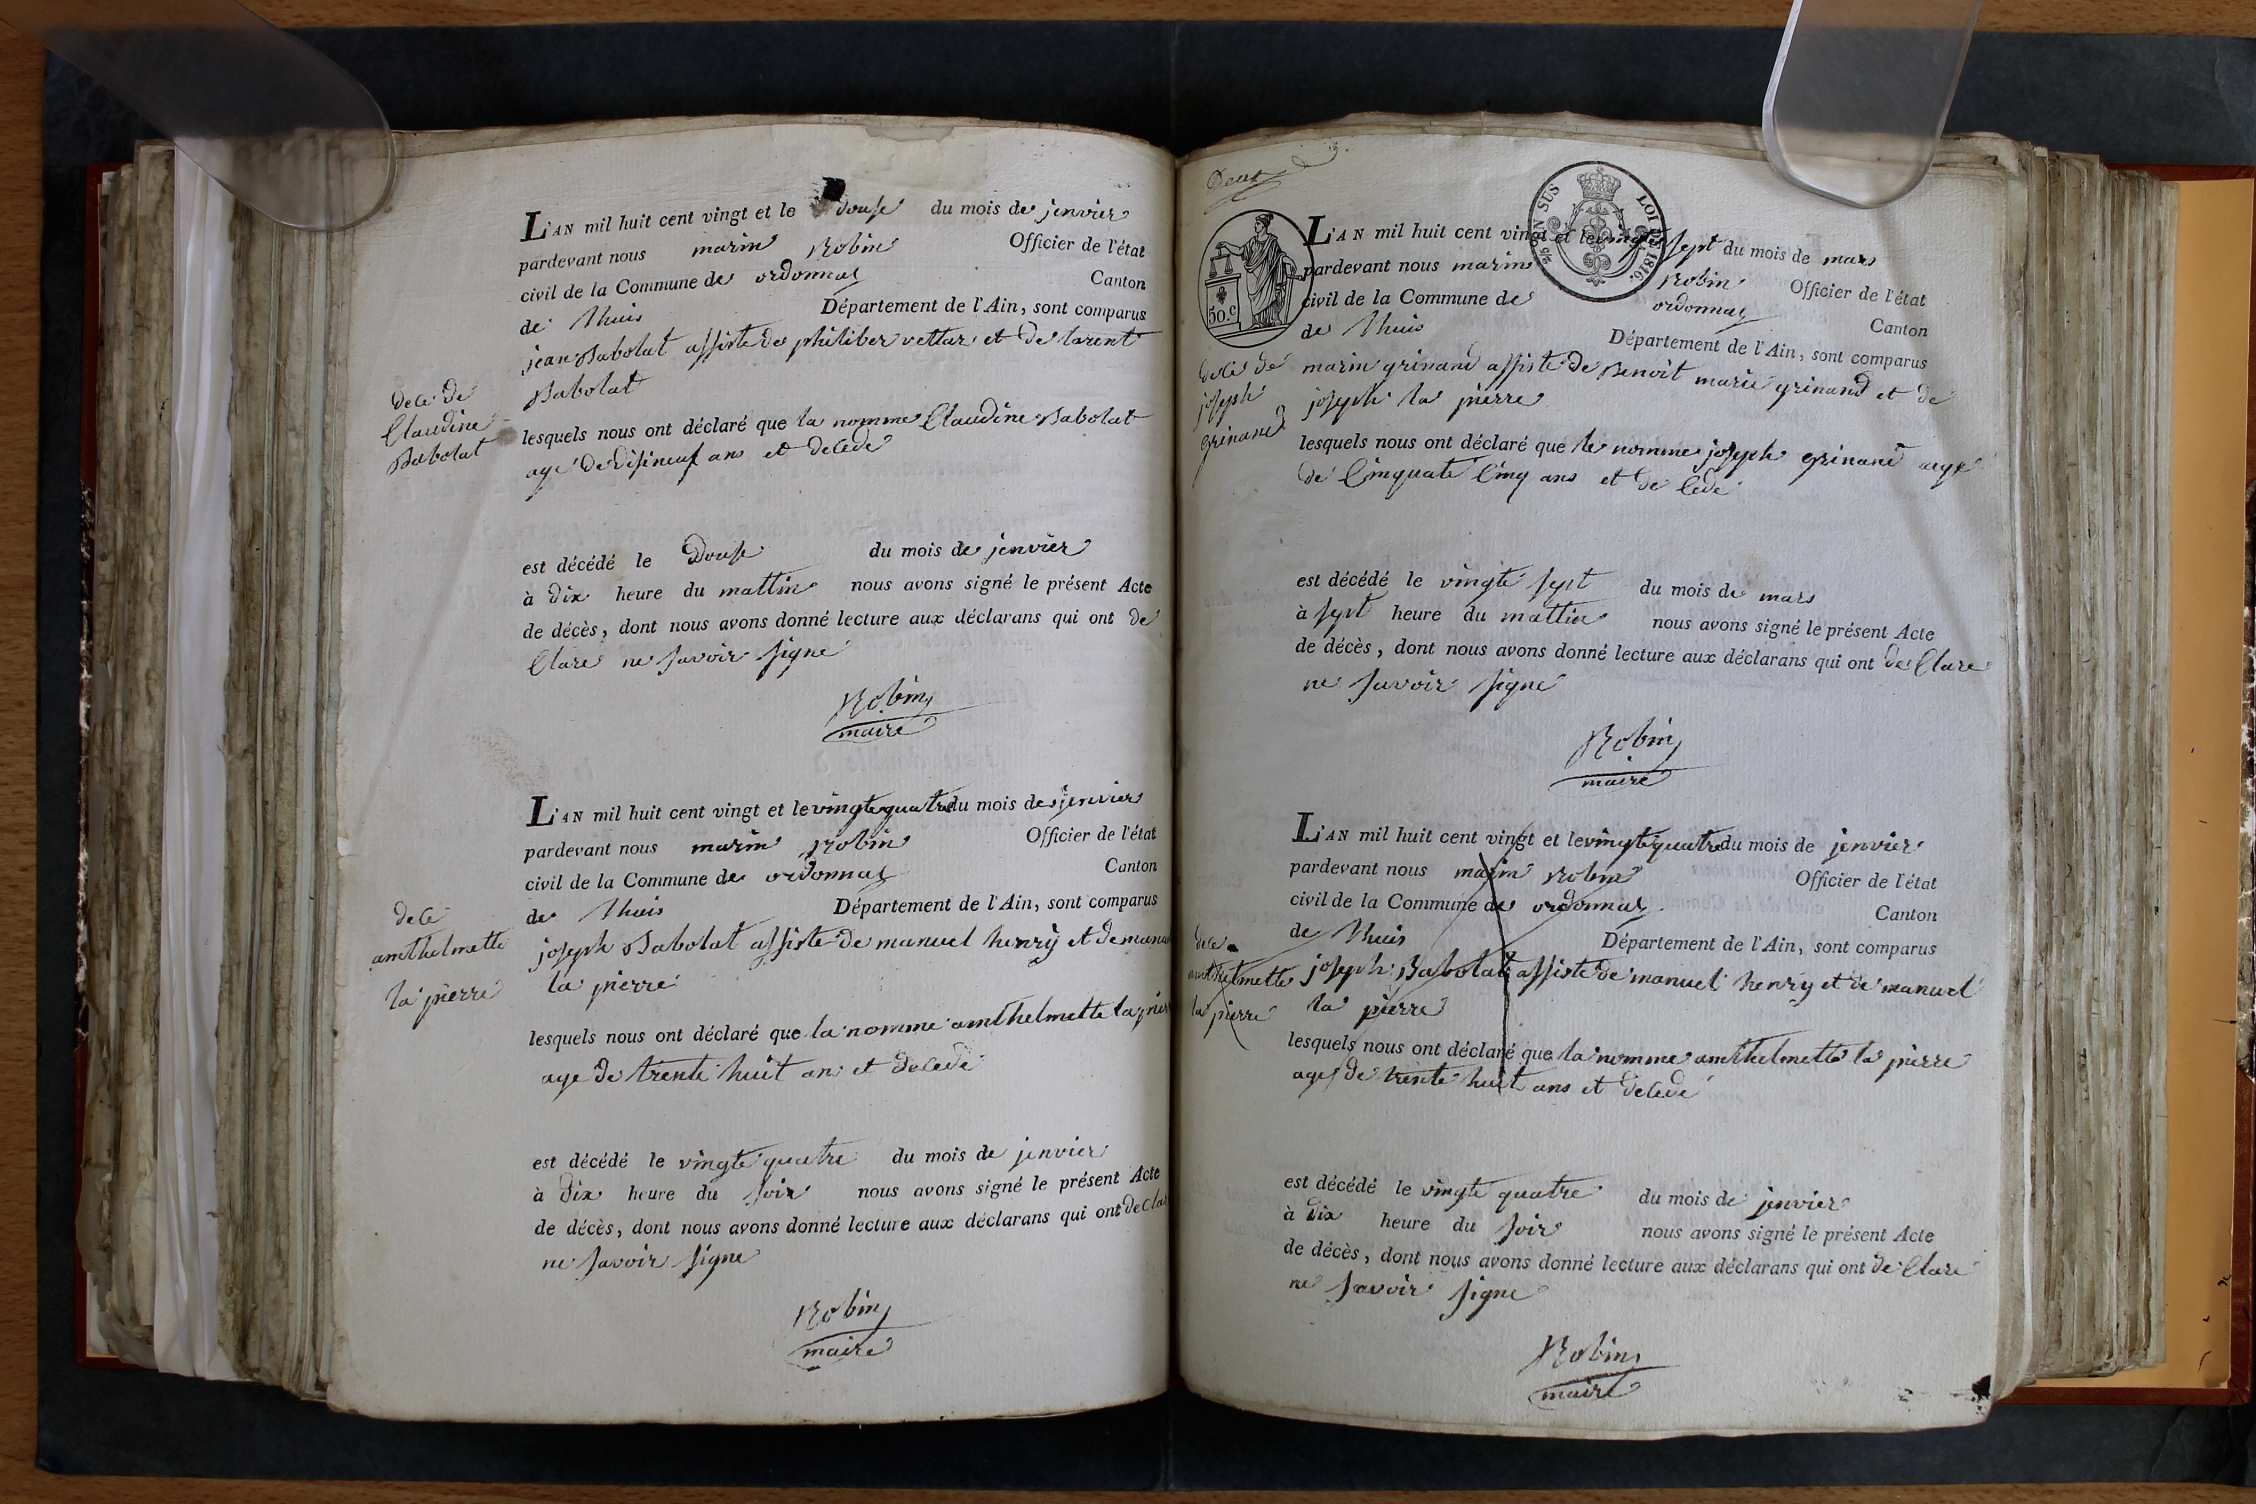 L'AN mil huit cent vingt et le douse du mois de jenvier
pardevant nous marin Robin Officier de l'état
civil de la Commune de ordonnas Canton
de lhuis Département de l'Ain, sont comparus
jean Babolat assiste de philiber vettar et de larent
Babolat
dece de
Claudine
Babolat
lesquels nous ont déclaré que la nomme Claudine Babolat
age de disineuf ans et decede
est décédé le Douse du mois de jenvier
à dix heure du mattin nous avons signé le présent Acte
de décès, dont nous avons donné lecture aux déclarans qui ont de
Clare ne savoir signe
Robin
maire
L'AN mil huit cent vingt et le vingte quatre du mois de jenvier
pardevant nous marin Robin Officier de l'état
civil de la Commune de ordonnas Canton
de lhuis Département de l'Ain, sont comparus
dece
amthelmette
la pierre
joseph Babolat assiste de manuel henry et de manu
la pierre
lesquels nous ont déclaré que la nomme amthelmette la pier
age de trente huit an et decede
est décédé le vingte quatre du mois de jenvier
à dix heure du soir nous avons signé le présent Acte
de décès, dont nous avons donné lecture aux déclarans qui ont de Cla
ne savoir signe
Robin
maire
Deux
EN SUS LOI DE 1816.
50.c
L'AN mil huit cent vingt et le vingte sept du mois de mars
pardevant nous marin Robin Officier de l'état
civil de la Commune de ordonnas Canton
de lhuis Département de l'Ain, sont comparus
dece de
joseph
grinand
marin grinand assiste de Benoit marie grinand et de
joseph la pierre
lesquels nous ont déclaré que le nomme joseph grinand age
de Cinquate Cinq ans et de Cede
est décédé le vingte sept du mois de mars
à sept heure du mattin nous avons signé le présent Acte
de décès, dont nous avons donné lecture aux déclarans qui ont de Clare
ne savoir signe
Robin
maire
L'AN mil huit cent vingt et le vingte quatre du mois de jenvier
pardevant nous marin Robin Officier de l'état
civil de la Commune de ordonnas Canton
de lhuis Département de l'Ain, sont comparus
dece
amthelmette
la pierre
joseph Babolat assiste de manuel henry et de manuel
la pierre
lesquels nous ont déclaré que la nomme amthelmette la pierre
age de trente huit ans et decede
est décédé le vingte quatre du mois de jenvier
à dix heure du soir nous avons signé le présent Acte
de décès, dont nous avons donné lecture aux déclarans qui ont de Clare
ne savoir signe
Robin
maire